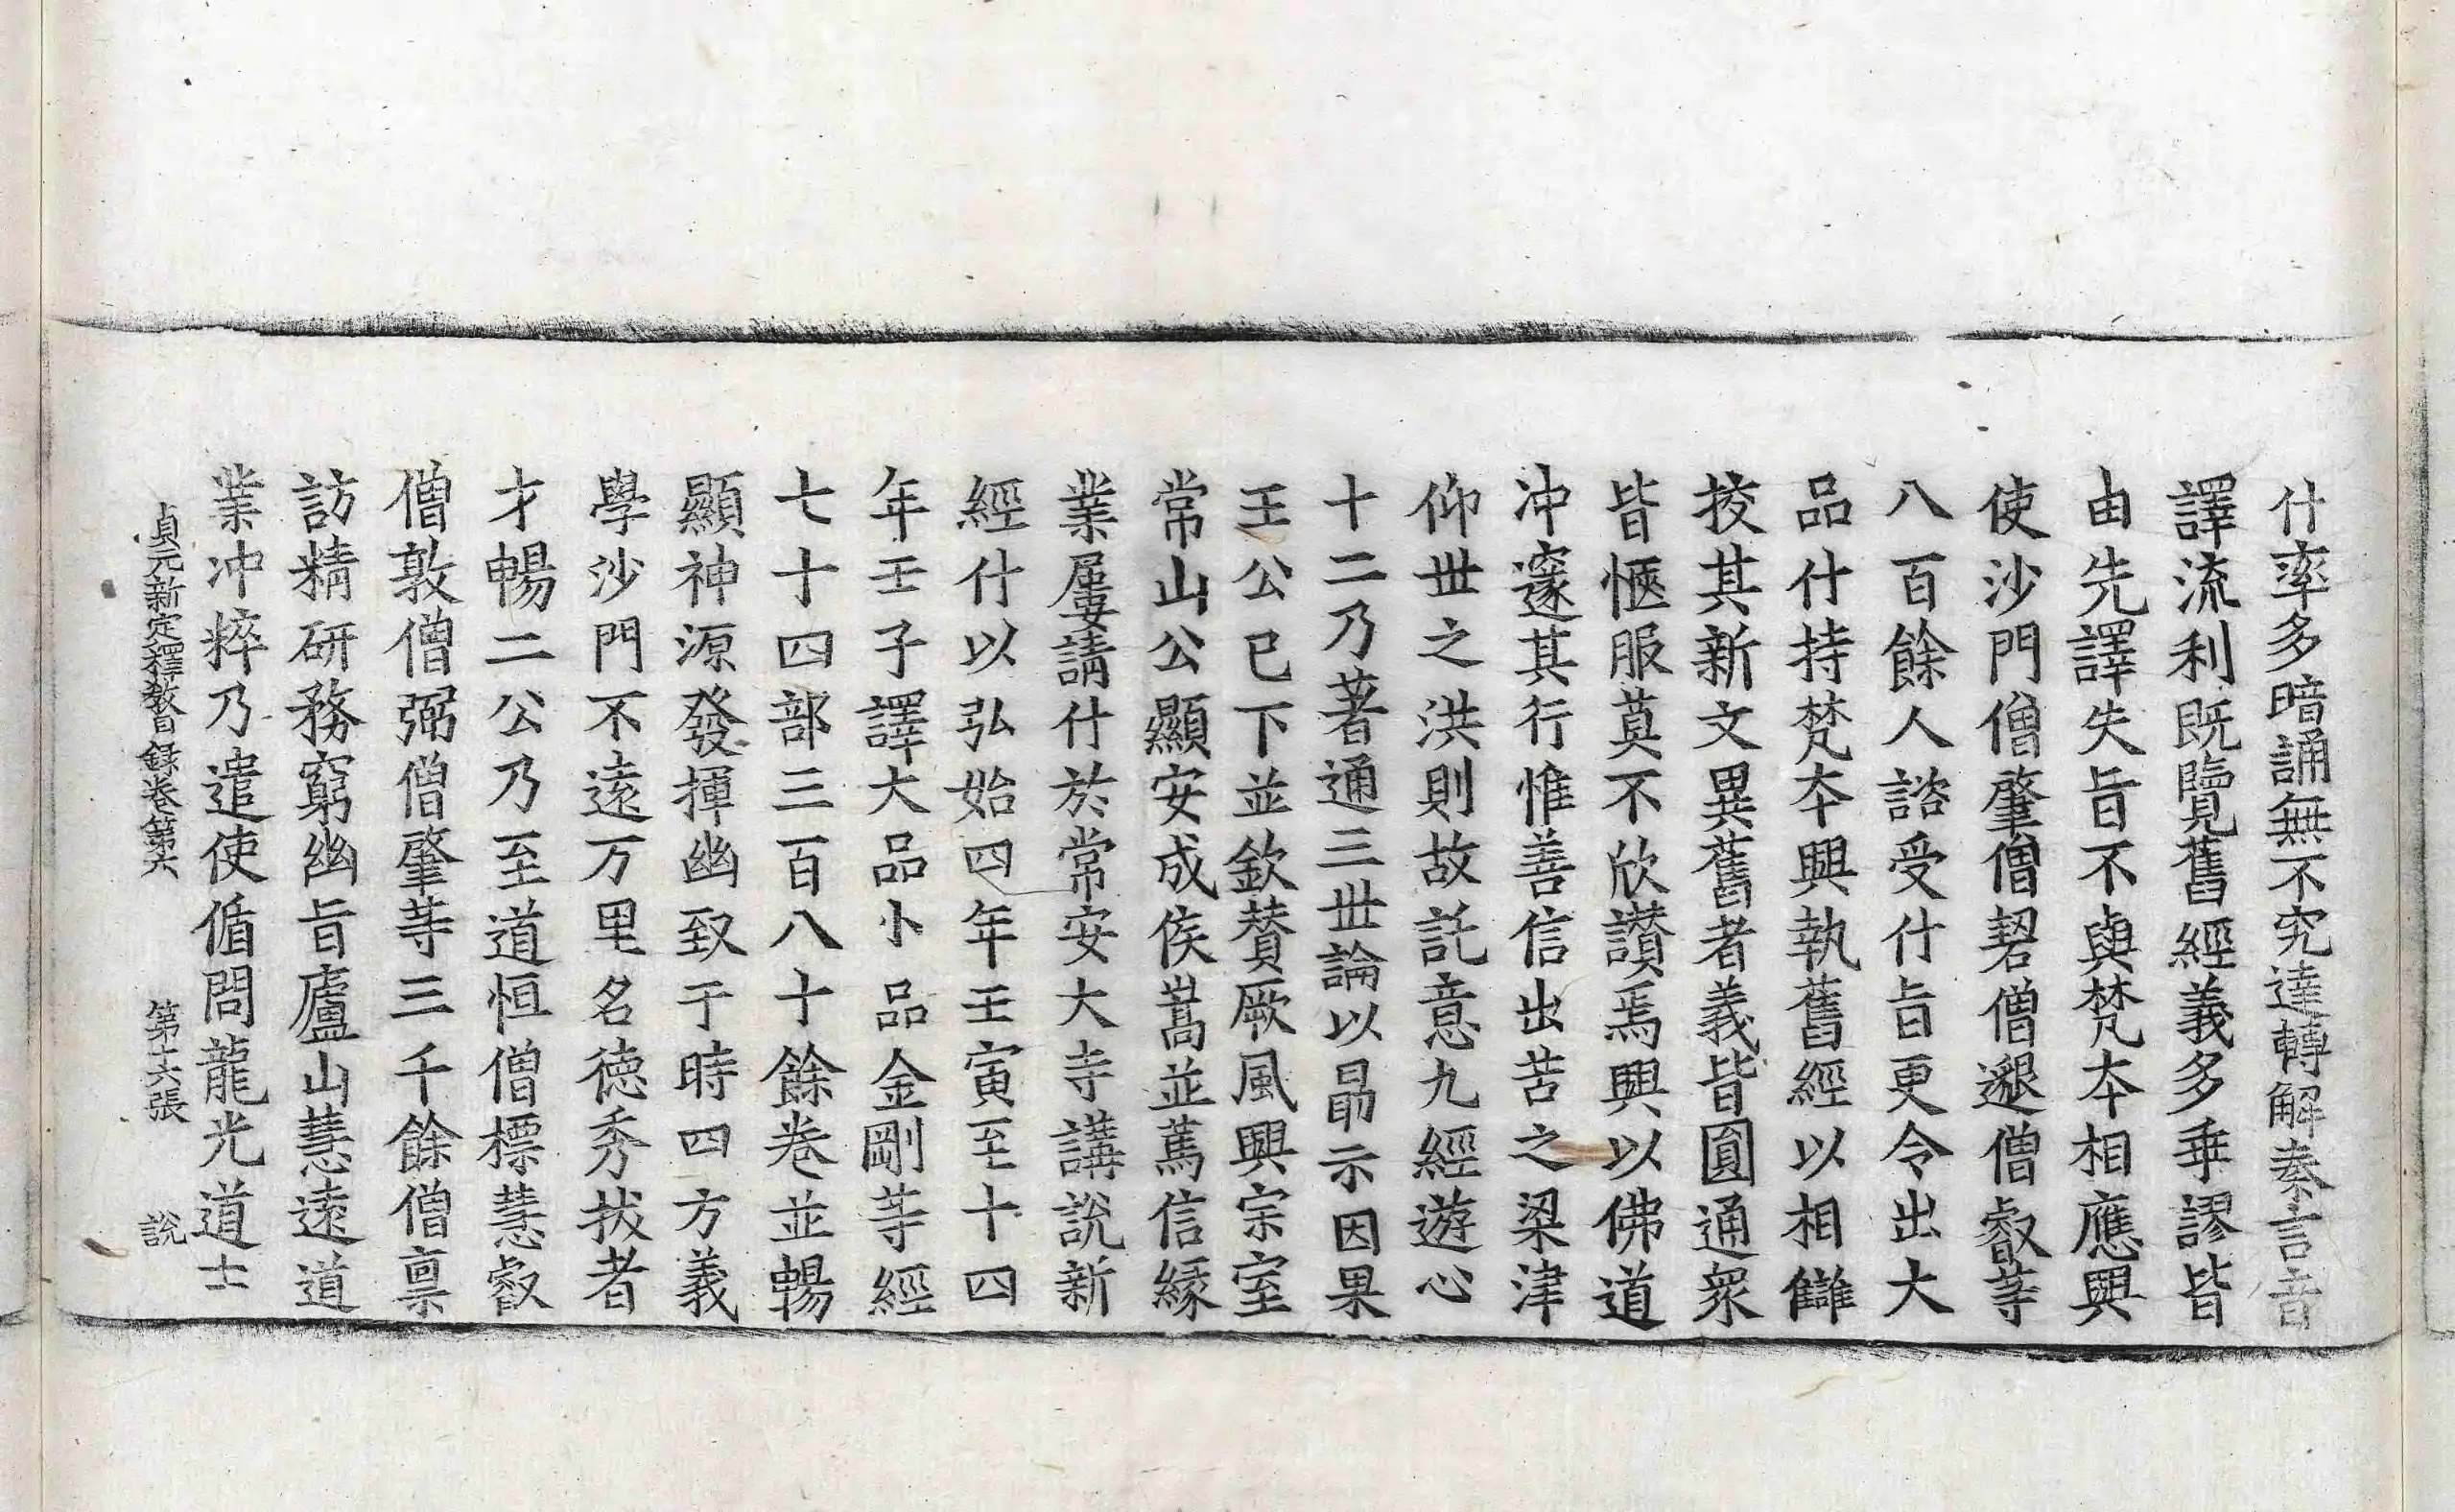 什率多暗誦無不究達轉解秦言音
譯流利旣覽舊經義多乖謬皆
由先譯失旨不與梵本相應興
使沙門僧肇僧䂮僧邈僧叡等
八百餘人諮受什旨更令出大
品什持梵本興執舊經以相讎
挍其新文異舊者義皆圓通衆
皆愜服莫不欣讚焉興以佛道
沖邃其行惟善信出苦之梁津
仰世之洪則故託意九經遊心
十二乃著通三世論以勗示因果
王公已下並欽賛厥風興宗室
常山公顯安成侯嵩並萬信緣
業屢請什於常安大寺講說新
經什以弘始四年壬寅至十四
年壬子譯大品小品金剛等經
七十四部三百八十餘卷並暢
顯神源發揮幽致于時四方義
學沙門不遠万里名德秀拔者
才暢二公乃至道恒僧標慧叡
僧敦僧弼僧肇等三千餘僧禀
訪精研務窮幽旨廬山慧遠道
業沖粹乃遣使循問龍光道士
貞元新定釋教目錄卷第六 第十六張 說